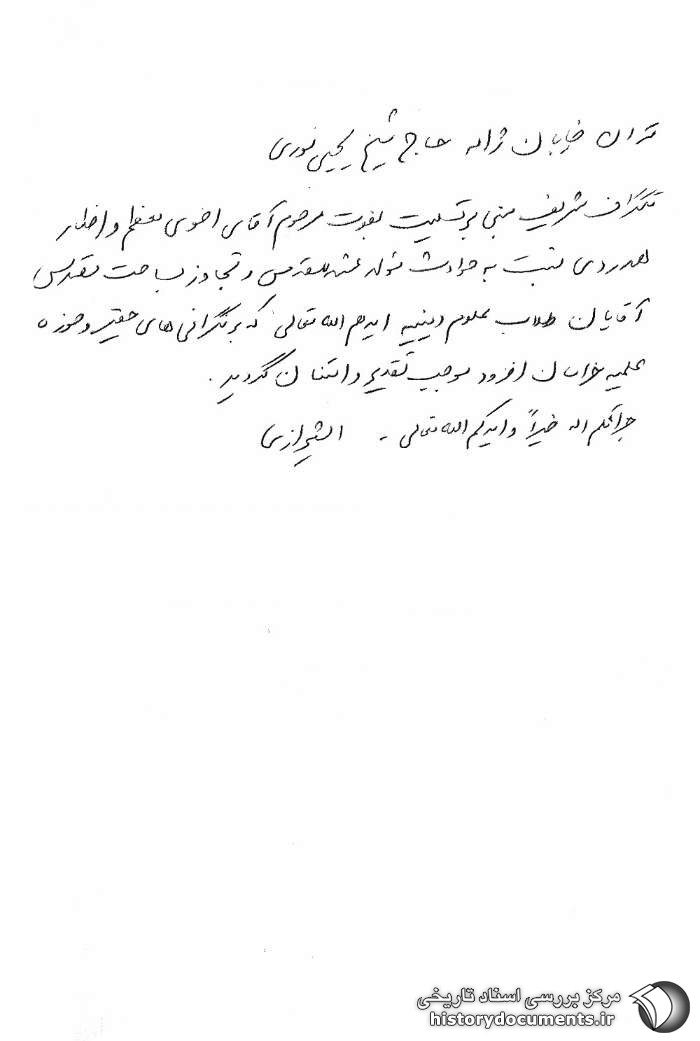 تهران خیابان ژاله حاج شیخ یحیی نوری
تلگراف شریف مبنی بر تسلیت بفوت مرحوم آقای اخوی معظم و اظهار
همدردی نسبت به حوادث مؤلمه مشهد مقدس و تجاوز بساحت مقدس
آقایان طلاب علوم دینیه ایدهم الله تعالی که بر نگرانی های حقیر و حوزه
علمیه خراسان افزود موجب تقدیر و امتنان گردید.
جزاکم الله خیراً و ایدکم الله تعالی - الشیرازی
مرکز بررسی اسناد تاریخی
historydocuments.ir